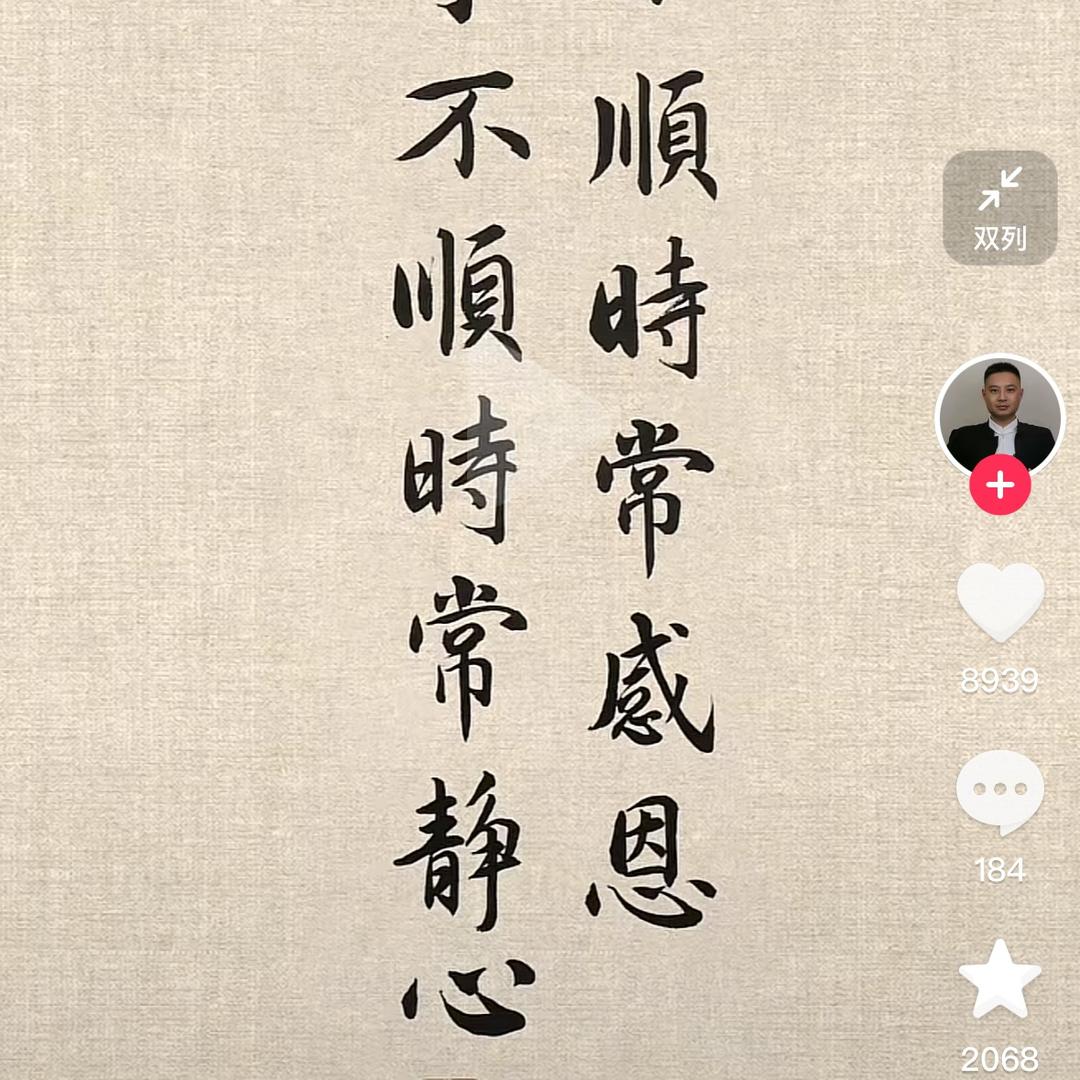 順時常感恩
不順時常靜心
双列
8939
184
2068